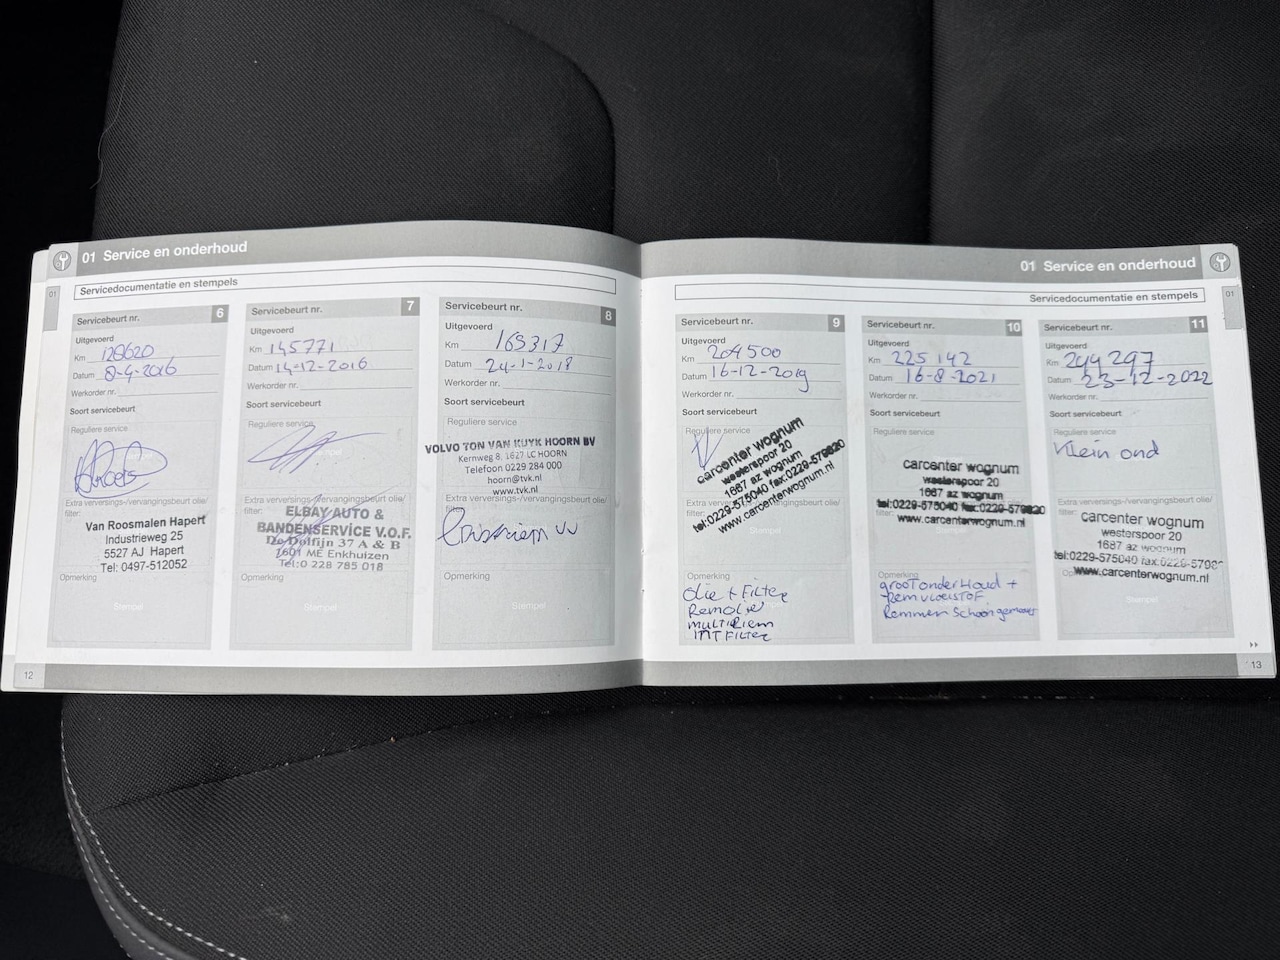 01 Service en onderhoud
01
Servicedocumentatie en stempels
Servicebeurt nr. 6
Uitgevoerd
Km 128620
Datum 8-4-2016
Werkorder nr.
Soort servicebeurt
Reguliere service
Extra verversings-/vervangingsbeurt olie/
filter:
Van Roosmalen Hapert
Industrieweg 25
5527 AJ Hapert
Tel: 0497-512052
Opmerking
Stempel
Servicebeurt nr. 7
Uitgevoerd
Km 145771
Datum 14-12-2016
Werkorder nr.
Soort servicebeurt
Reguliere service
Extra verversings-/vervangingsbeurt olie/
filter:
ELBAY AUTO &
BANDENSERVICE V.O.F.
De Dolfijn 37 A & B
1601 ME Enkhuizen
Tel: 0 228 785 018
Opmerking
Stempel
Servicebeurt nr. 8
Uitgevoerd
Km 169317
Datum 24-1-2018
Werkorder nr.
Soort servicebeurt
Reguliere service
VOLVO TON VAN KUYK HOORN BV
Kernweg 8, 1627 LC HOORN
Telefoon 0229 284 000
hoorn@tvk.nl
www.tvk.nl
Extra verversings-/vervangingsbeurt olie/
filter:
Opmerking
Stempel
12
01 Service en onderhoud
01
Servicedocumentatie en stempels
Servicebeurt nr. 9
Uitgevoerd
Km 204500
Datum 16-12-2019
Werkorder nr.
Soort servicebeurt
Reguliere service
carcenter wognum
westerspoor 20
1687 az wognum
tel:0229-575040 fax:0229-579820
www.carcenterwognum.nl
Extra verversings-/vervangingsbeurt olie/
filter:
Stempel
Opmerking
olie + Filter
Remolie
multiRiem
INTFilter
Servicebeurt nr. 10
Uitgevoerd
Km 225142
Datum 16-8-2021
Werkorder nr.
Soort servicebeurt
Reguliere service
carcenter wognum
westerspoor 20
1687 az wognum
tel:0229-575040 fax:0229-579820
www.carcenterwognum.nl
Extra verversings-/vervangingsbeurt olie/
filter:
Opmerking
groot onderHoud +
Remvloeistof
Remmen Schoon gemaakt
Servicebeurt nr. 11
Uitgevoerd
Km 244297
Datum 23-12-2022
Werkorder nr.
Soort servicebeurt
Reguliere service
Klein ond
Extra verversings-/vervangingsbeurt olie/
filter:
carcenter wognum
westerspoor 20
1687 az wognum
tel:0229-575040 fax:0229-5798
www.carcenterwognum.nl
Stempel
13